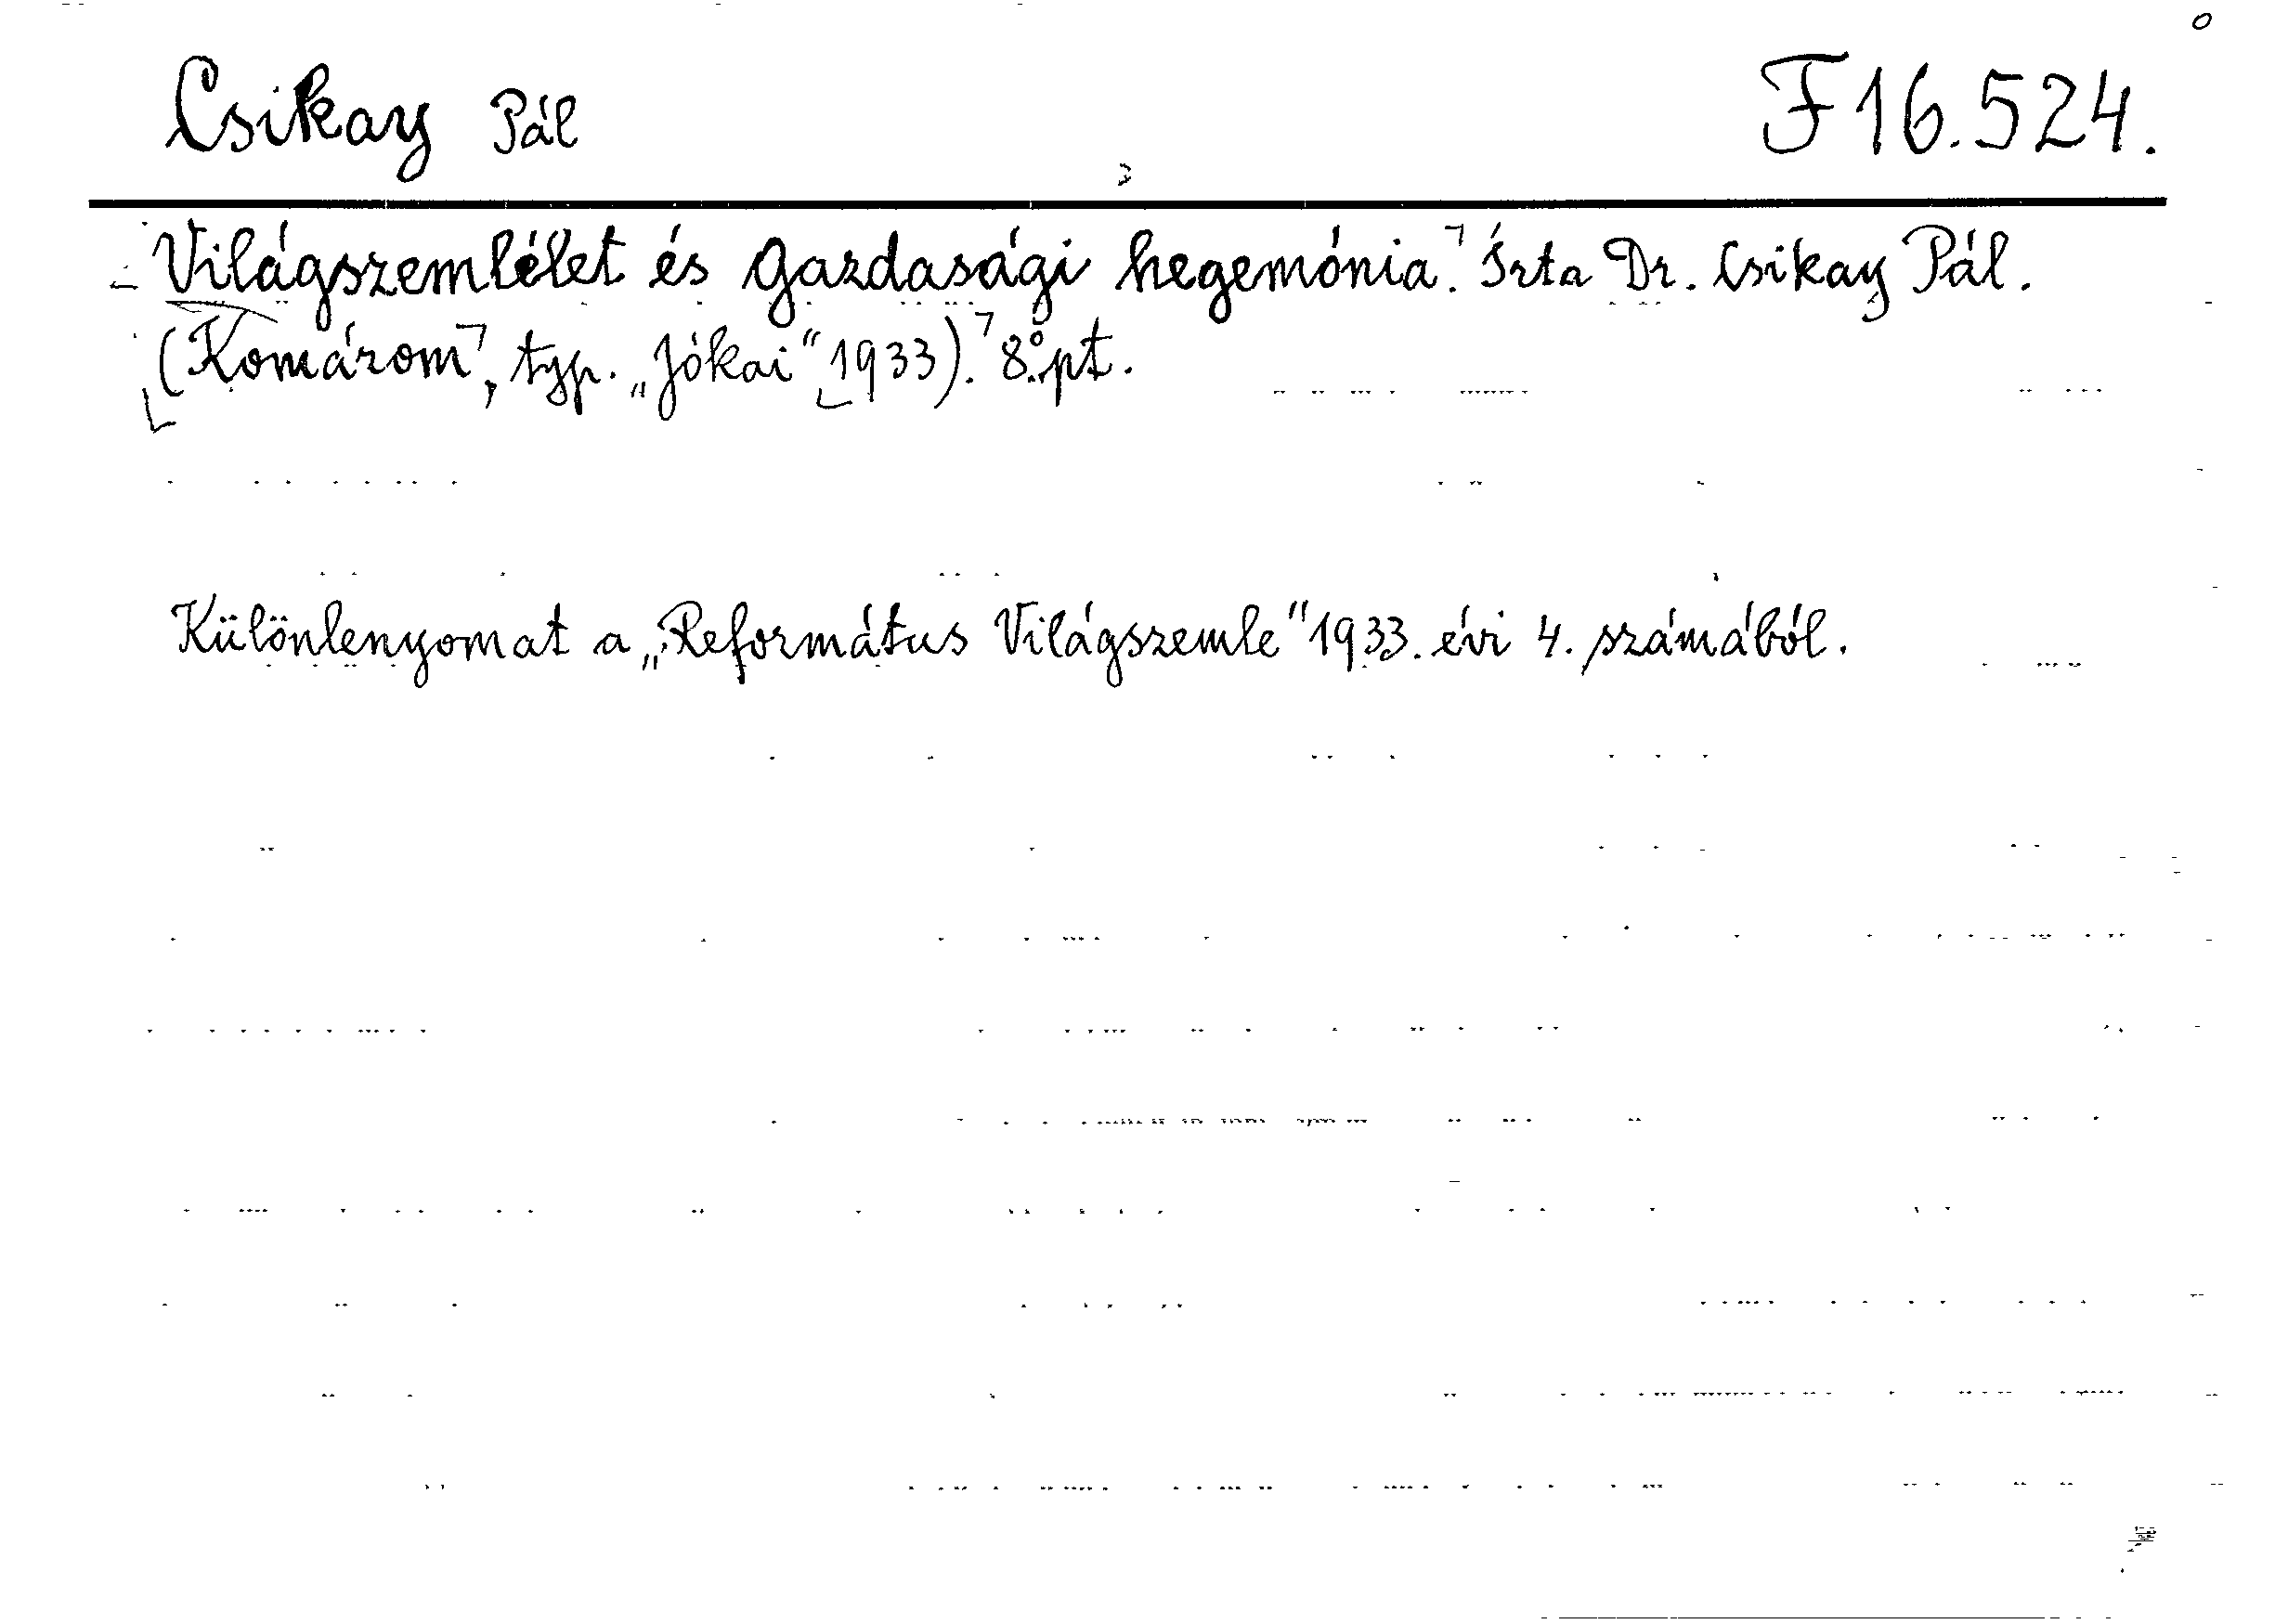 Csikay Pál F 16.524.
Világszemlélet és gazdasági hegemónia. Írta Dr. Csikay Pál.
(Komárom, typ. „Jókai” 1933). 8° pt.
Különlenyomat a „Református Világszemle” 1933. évi 4. számából.